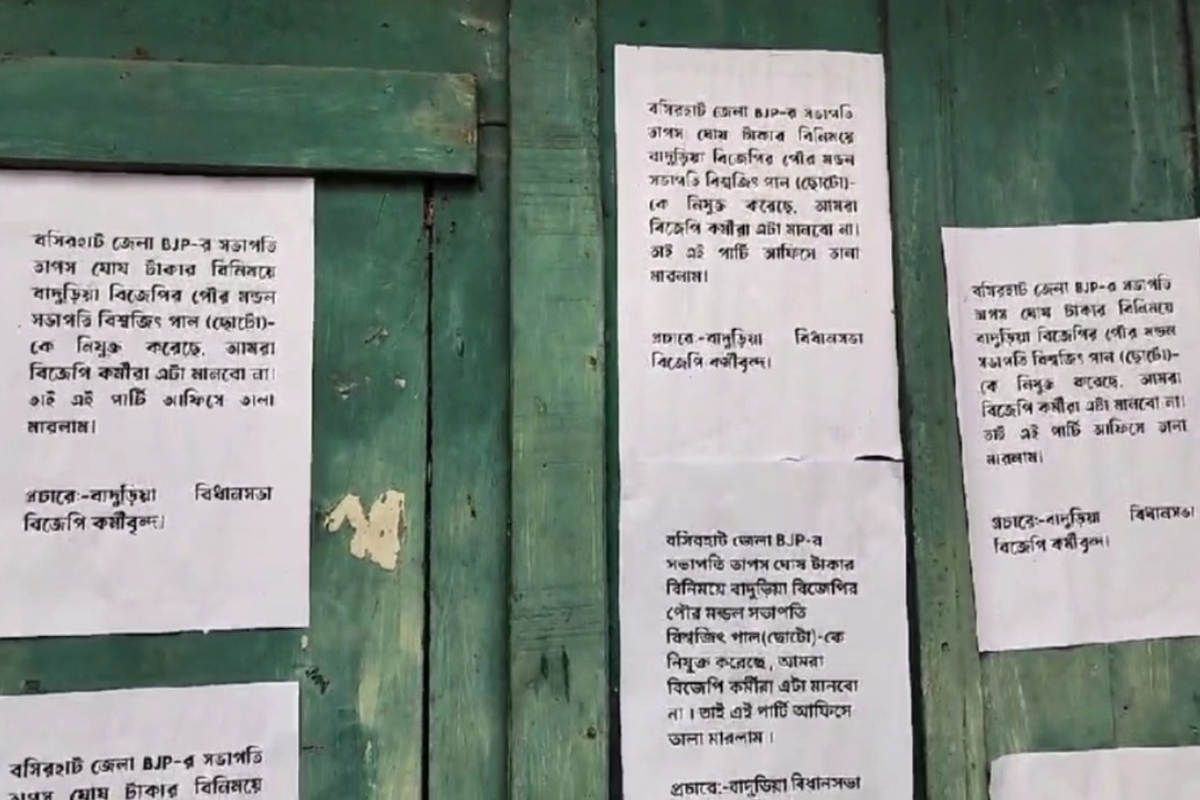 বসিরহাট জেলা BJP-র সভাপতি
তাপস ঘোষ টাকার বিনিময়ে
বাদুড়িয়া বিজেপির পৌর মন্ডল
সভাপতি বিশ্বজিৎ পাল (ছোটো)-
কে নিযুক্ত করেছে, আমরা
বিজেপি কর্মীরা এটা মানবো না।
তাই এই পার্টি আফিসে তালা
মারলাম।
প্রচারে:-বাদুড়িয়া বিধানসভা
বিজেপি কর্মীবৃন্দ।
বসিরহাট জেলা BJP-র সভাপতি
তাপস ঘোষ টাকার বিনিময়ে
বসিরহাট জেলা BJP-র সভাপতি
তাপস ঘোষ টাকার বিনিময়ে
বাদুড়িয়া বিজেপির পৌর মন্ডল
সভাপতি বিশ্বজিৎ পাল (ছোটো)-
কে নিযুক্ত করেছে, আমরা
বিজেপি কর্মীরা এটা মানবো না।
তাই এই পার্টি আফিসে তালা
মারলাম।
প্রচারে:-বাদুড়িয়া বিধানসভা
বিজেপি কর্মীবৃন্দ।
বসিরহাট জেলা BJP-র
সভাপতি তাপস ঘোষ টাকার
বিনিময়ে বাদুড়িয়া বিজেপির
পৌর মন্ডল সভাপতি
বিশ্বজিৎ পাল(ছোটো)-কে
নিযুক্ত করেছে, আমরা
বিজেপি কর্মীরা এটা মানবো
না । তাই এই পার্টি আফিসে
তালা মারলাম ।
প্রচারে:-বাদুড়িয়া বিধানসভা
বসিরহাট জেলা BJP-র সভাপতি
তাপস ঘোষ টাকার বিনিময়ে
বাদুড়িয়া বিজেপির পৌর মন্ডল
সভাপতি বিশ্বজিৎ পাল (ছোটো)-
কে নিযুক্ত করেছে, আমরা
বিজেপি কর্মীরা এটা মানবো না।
তাই এই পার্টি আফিসে তালা
মারলাম।
প্রচারে:-বাদুড়িয়া বিধানসভা
বিজেপি কর্মীবৃন্দ।